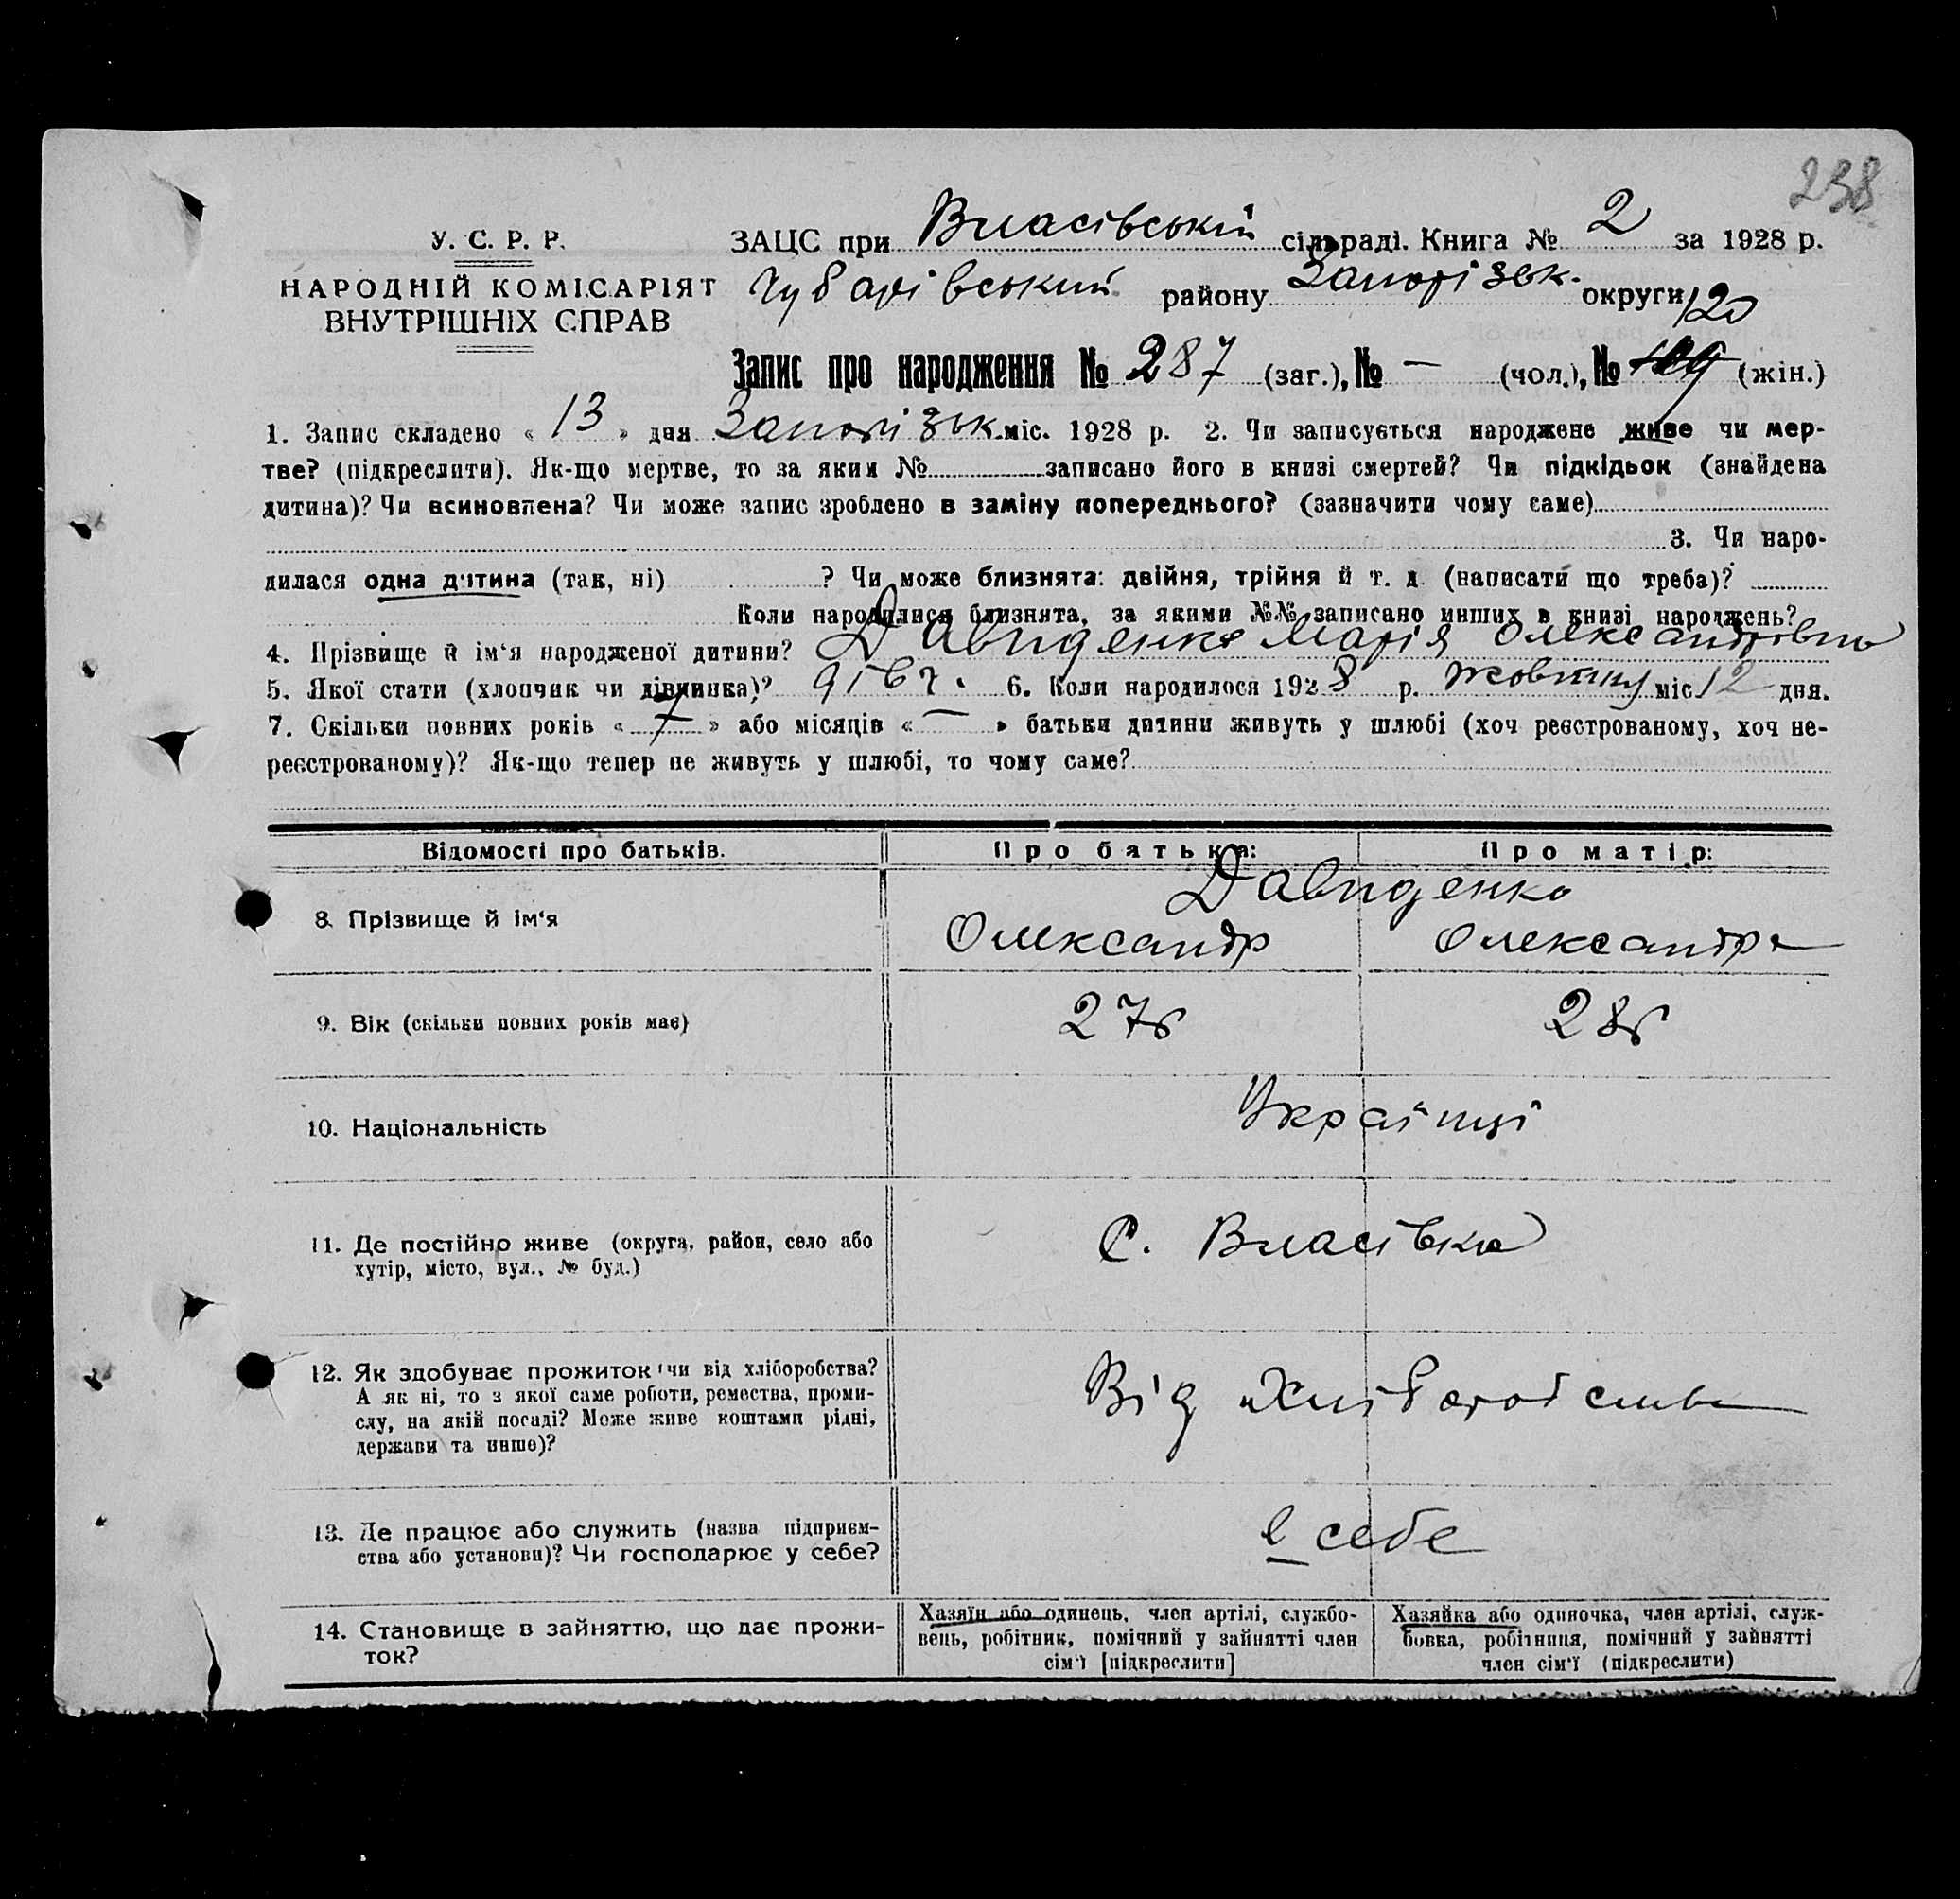 238
У. С. Р. Р.
НАРОДНІЙ КОМІСАРІЯТ
ВНУТРІШНІХ СПРАВ
ЗАЦС при Власівській сільраді. Книга № 2 за 1928 р.
Чубарівський району Запорізьк. округи
120
Запис про народження № 287 (заг.), № — (чол.), № 119 (жін.)
1. Запис складено « 13 » дня Запорізьк. міс. 1928 р. 2. Чи записується народжене живе чи мер-
тве? (підкреслити). Як-що мертве, то за яким № записано його в книзі смертей? Чи підкідьок (знайдена
дитина)? Чи всиновлена? Чи може запис зроблено в заміну попереднього? (зазначити чому саме)
3. Чи наро-
дилася одна дитина (так, ні) ? Чи може близнята: двійня, трійня й т. д. (написати що треба)?
Коли народилися близнята, за якими №№ записано инших в книзі народжень?
4. Прізвище й ім'я народженої дитини? Давиденко Марія Олександрівна
5. Якої стати (хлопчик чи дівчинка)? дівч. 6. Коли народилося 1928 р. жовтня міс 12 дня.
7. Скільки повних років « 7 » або місяців « — » батьки дитини живуть у шлюбі (хоч реєстрованому, хоч не-
реєстрованому)? Як-що тепер не живуть у шлюбі, то чому саме?
Відомості про батьків. Про батька: Про матір:
Давиденко
8. Прізвище й ім'я Олександр Олександра
9. Вік (скільки повних років має) 27р 28р
10. Національність Українці
11. Де постійно живе (округа, район, село або
хутір, місто, вул., № буд.) С. Власівка
12. Як здобуває прожиток (чи від хліборобства?
А як ні, то з якої саме роботи, ремества, проми-
слу, на якій посаді? Може живе коштами рідні,
держави та инше)? Від Хліборобства
13. Де працює або служить (назва підприєм-
ства або установи)? Чи господарює у себе? в себе
14. Становище в зайняттю, що дає прожи-
ток?
Хазяїн або одинець, член артілі, службо-
вець, робітник, помічний у зайнятті член
сім'ї [підкреслити]
Хазяйка або одиночка, член артілі, служ-
бовка, робітниця, помічний у зайнятті
член сім'ї (підкреслити)